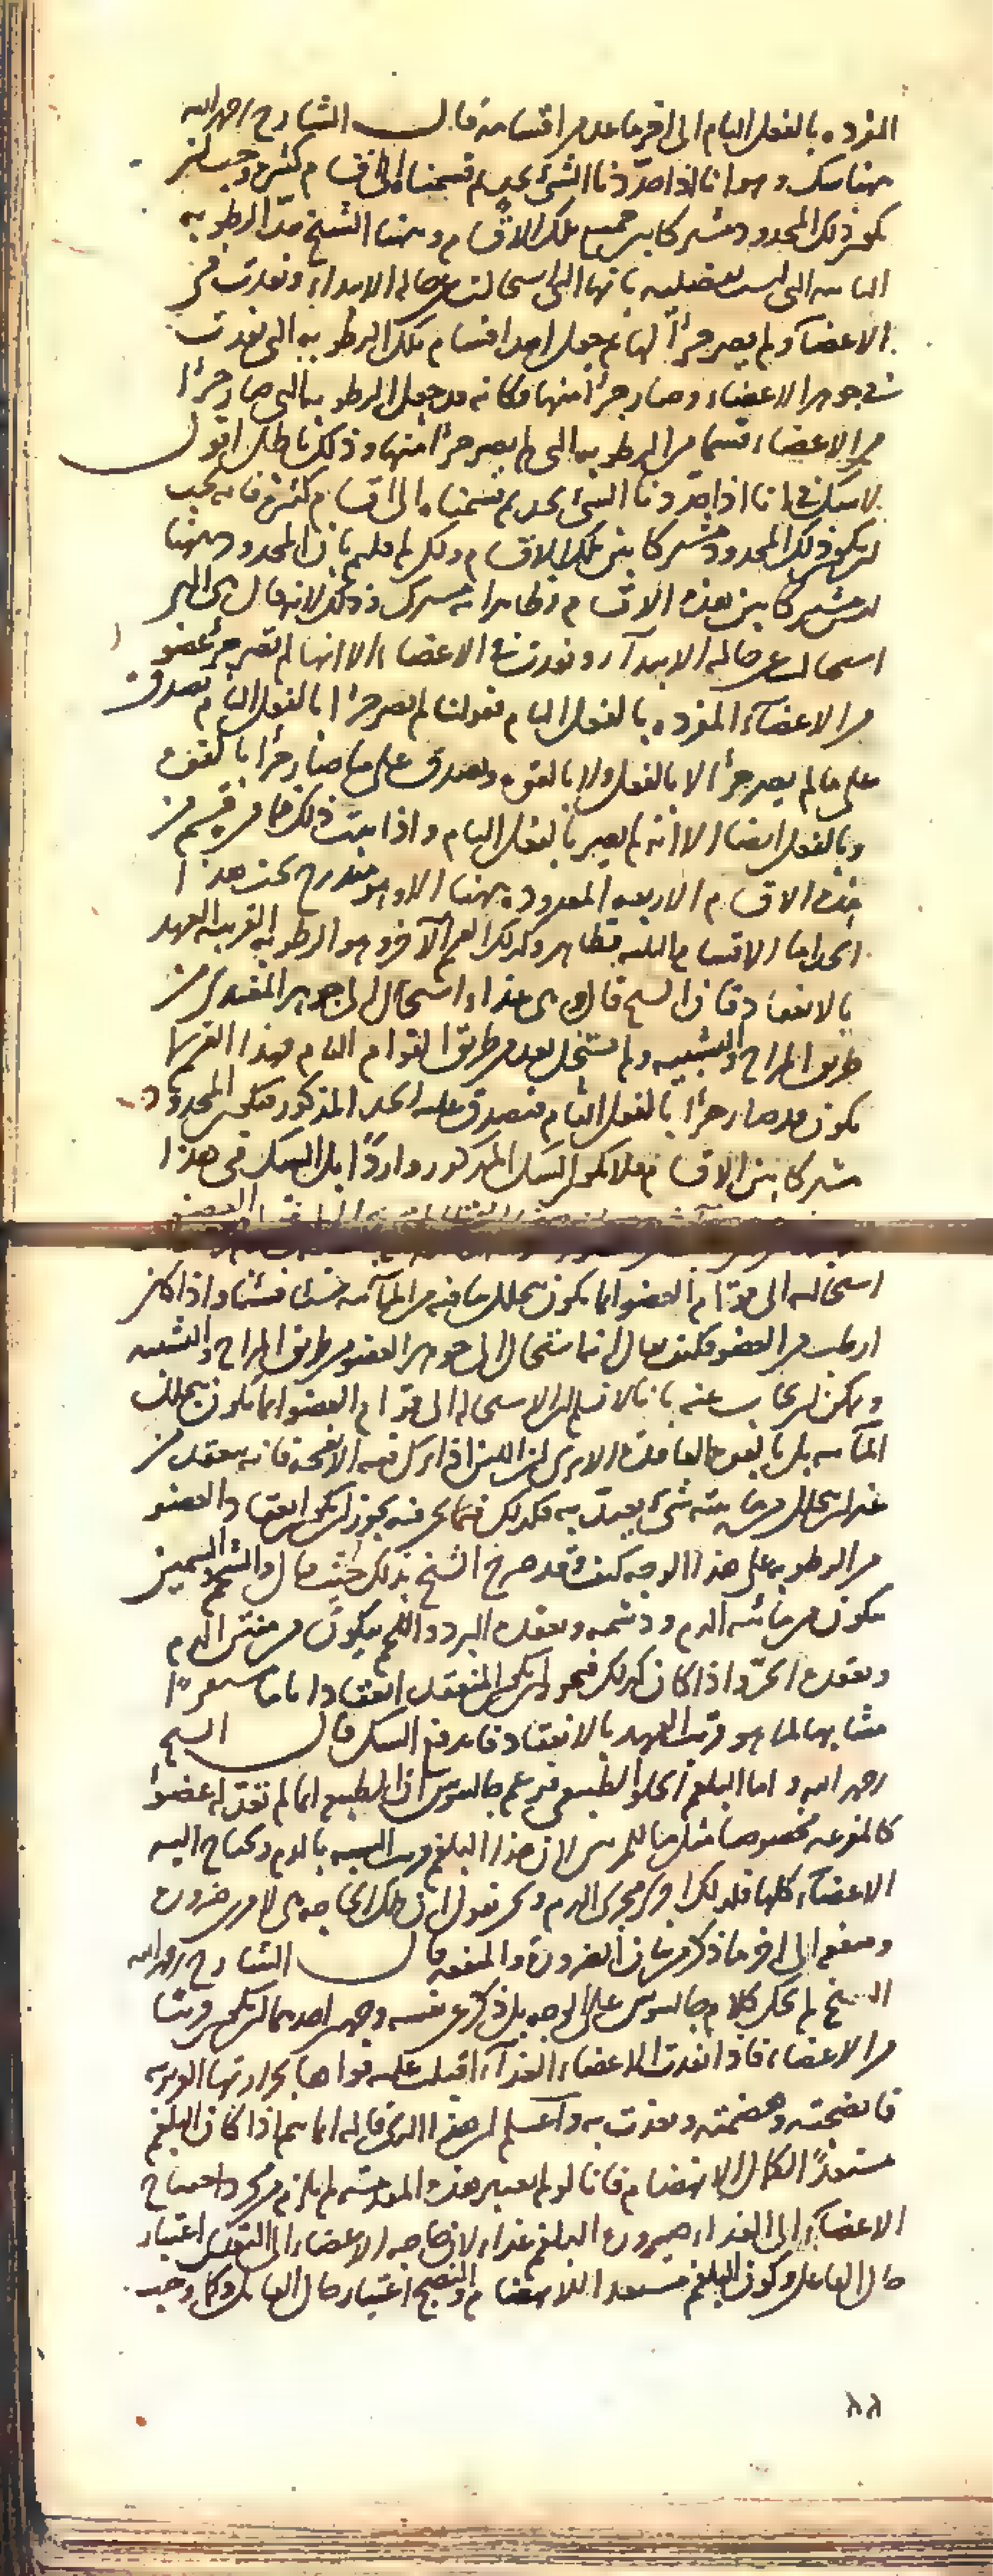 المفرده بالفعل التام الى اخر ما عد من اقسامه قال الشارح رحمه الله
ههنا شك وهو انا اذا حددنا الشئ بحد ثم قسمناه الى اقسام كثيرة وجب ان
يكون ذلك المحدود مشتركا بين جميع تلك الاقسام وههنا الشيخ حد الرطوبه
الثانيه التى ليست بفضليه بانها التى استحالت عن حاله الابتداء ونفذت في
الاعضاء ولم يصر جزأ لها ثم جعل احد اقسام تلك الرطوبه التى نفذت
في جوهر الاعضاء وصار جزأ منها فكانه قد جعل الرطوبه التى صارت جزأ
من الاعضاء قسما من الرطوبه التى لم يصر جزأ منها وذلك باطل اقول
لا شك في انا اذا حددنا الشئ بحد ثم قسمناه الى اقسام كثيرة فانه يجب
ان يكون ذلك المحدود مشتركا بين تلك الاقسام ولكن لم قلتم بان المحدود ههنا
ليس مشتركا بين هذه الاقسام وظاهر انه مشترك وذلك لانه قال هى التى
استحالت عن حاله الابتداء ونفذت في الاعضاء الا انها لم تصر جزء عضو
من الاعضاء المفرده بالفعل التام فقولنا لم يصر جزأ بالفعل التام يصدق
على ما لم يصر جزأ لا بالفعل ولا بالقوه ويصدق على ما صار جزأ بالقوه
وبالفعل ايضا الا انه لم يصر بالفعل التام واذا ثبت ذلك فما من قسم من
هذه الاقسام الاربعه المعدوده ههنا الا وهو مندرج تحت هذا
الحد اما الاقسام الثلثه فظاهر وكذلك القسم الاخر وهو الرطوبه القريبه العهد
بالانعقاد فان الشيخ قال وهى غذاء استحال الى جوهر المغتذى من
طريق المزاج والتشبيه ولم يستحل بعد من طريق القوام التام فهذا القسم لا
يكون قد صار جزأ بالفعل التام فيصدق عليه الحد المذكور فيكون المحدود
مشتركا بين الاقسام فلا يكون الشك المذكور واردا بل الشك في هذا
استحاله الى قوام العضو انما يكون بتحلل ما فيه من المائيه شيئا فشيئا واذا كان
ارطب من العضو فكيف يقال انما استحال الى جوهر العضو من طريق المزاج والتشبيه
ويمكن ان يجاب عنه بانا لا نسلم ان الاستحاله الى قوام العضو انما يكون بتحلل
المائيه بل بالقوه العاقده الا ترى ان اللبن اذا ترك فيه الانفحه فانه ينعقد من
غير ان يتحلل من مائيته شئ يعتد به فكذلك فيما نحن فيه يجوز ان يكون انعقاد العضو
من الرطوبه على هذا الوجه كيف وقد صرح الشيخ بذلك حيث قال والشحم والسمين
يكون من مائيه الدم ودسمه ويعقده البرد واللحم يتكون من متين الدم
ويعقده الحر واذا كان كذلك فيجوز ان يكون المنعقد انعقادا تاما
مشابها لما هو قريب العهد بالانعقاد فاندفع الشك قال الشيخ
رحمه الله واما البلغم الحلو الطبيعى فزعم جالينوس ان الطبيعه انما لم تعد له عضوا
كالمفرغه مخصوصا مثل ما للمرتين لان هذا البلغم قريب الشبه بالدم ويحتاج اليه
الاعضاء كلها فلذلك اجرى مجرى الدم ونحن نقول ان تلك الحاجه هى لامرين ضروره
ومنفعه الى اخر ما ذكر من بيان الضروره والمنفعه قال الشارح رحمه الله
الشيخ لم يحك كلام جالينوس على الوجه بل ذكر عن نفسه وجهين احدهما ان يكون قريبا
من الاعضاء فاذا فقدت الاعضاء الغذاء اقبلت عليه قواها بحرارتها الغريزيه
فانضجته وهضمته وتغذت به واعلم ان هذا الذى قاله انما يتم اذا كان البلغم
مستعدا لكمال الانهضام فانا لو لم نعتبر هذه المقدمه لم يلزم من مجرد احتياج
الاعضاء الى الغذاء صيروره البلغم غذاء لان حاجه الاعضاء الى التغذى اعتبار
حال الفاعل وكون البلغم مستعدا للانهضام والنضج اعتبار حال القابل وكما وجب